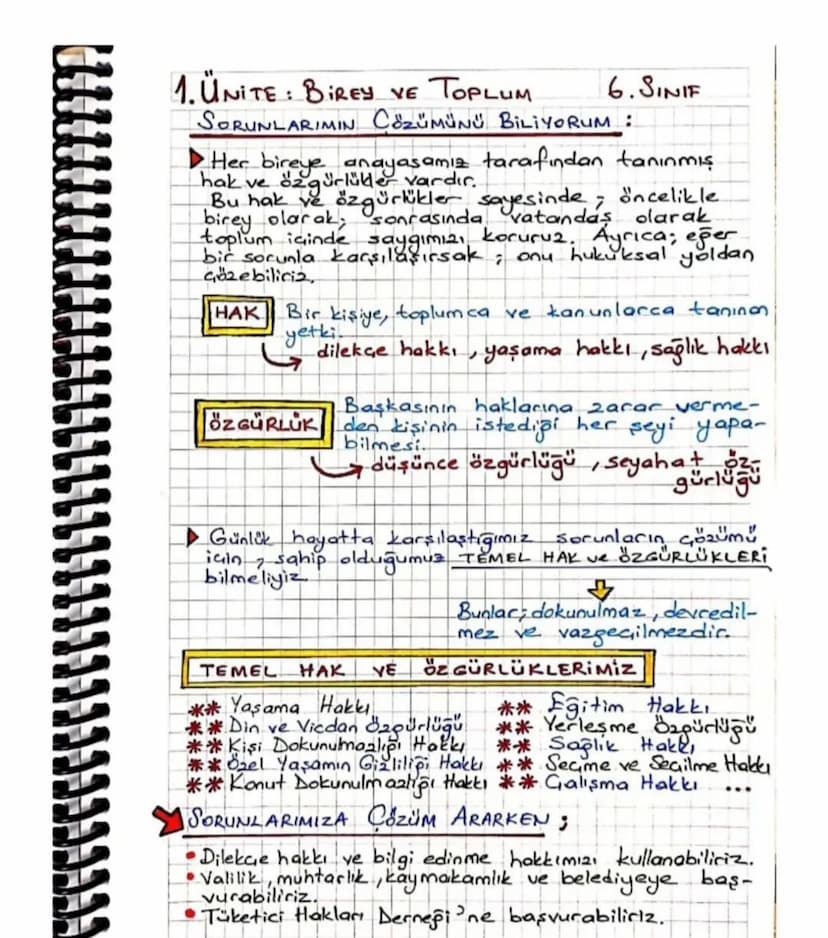 1. ÜNİTE : BİREY VE TOPLUM 6. SINIF
SORUNLARIMIN ÇÖZÜMÜNÜ BİLİYORUM :
Her bireye anayasamız tarafından tanınmış
hak ve özgürlükler vardır.
Bu hak ve özgürlükler sayesinde ; öncelikle
birey olarak; sonrasında vatandaş olarak
toplum içinde saygımızı koruruz. Ayrıca; eğer
bir sorunla karşılaşırsak ; onu hukuksal yoldan
çözebiliriz.
HAK Bir kişiye, toplumca ve kanunlarca tanınan
yetki.
dilekçe hakkı , yaşama hakkı , sağlık hakkı
Başkasının haklarına zarar verme-
ÖZGÜRLÜK den kişinin istediği her şeyi yapa-
bilmesi.
düşünce özgürlüğü , seyahat öz-
gürlüğü
Günlük hayatta karşılaştığımız sorunların çözümü
için , sahip olduğumuz TEMEL HAK ve ÖZGÜRLÜKLERİ
bilmeliyiz.
Bunlar; dokunulmaz , devredil-
mez ve vazgeçilmezdir.
TEMEL HAK VE ÖZGÜRLÜKLERİMİZ
** Yaşama Hakkı
** Din ve Vicdan Özgürlüğü
** Kişi Dokunulmazlığı Hakkı
** Özel Yaşamın Gizliliği Hakkı
** Konut Dokunulmazlığı Hakkı
** Eğitim Hakkı
** Yerleşme Özgürlüğü
** Sağlık Hakkı
** Seçme ve Seçilme Hakkı
** Çalışma Hakkı ...
SORUNLARIMIZA ÇÖZÜM ARARKEN ;
• Dilekçe hakkı ve bilgi edinme hakkımızı kullanabiliriz.
• Valilik , muhtarlık , kaymakamlık ve belediyeye baş-
vurabiliriz.
• Tüketici Hakları Derneği'ne başvurabiliriz.